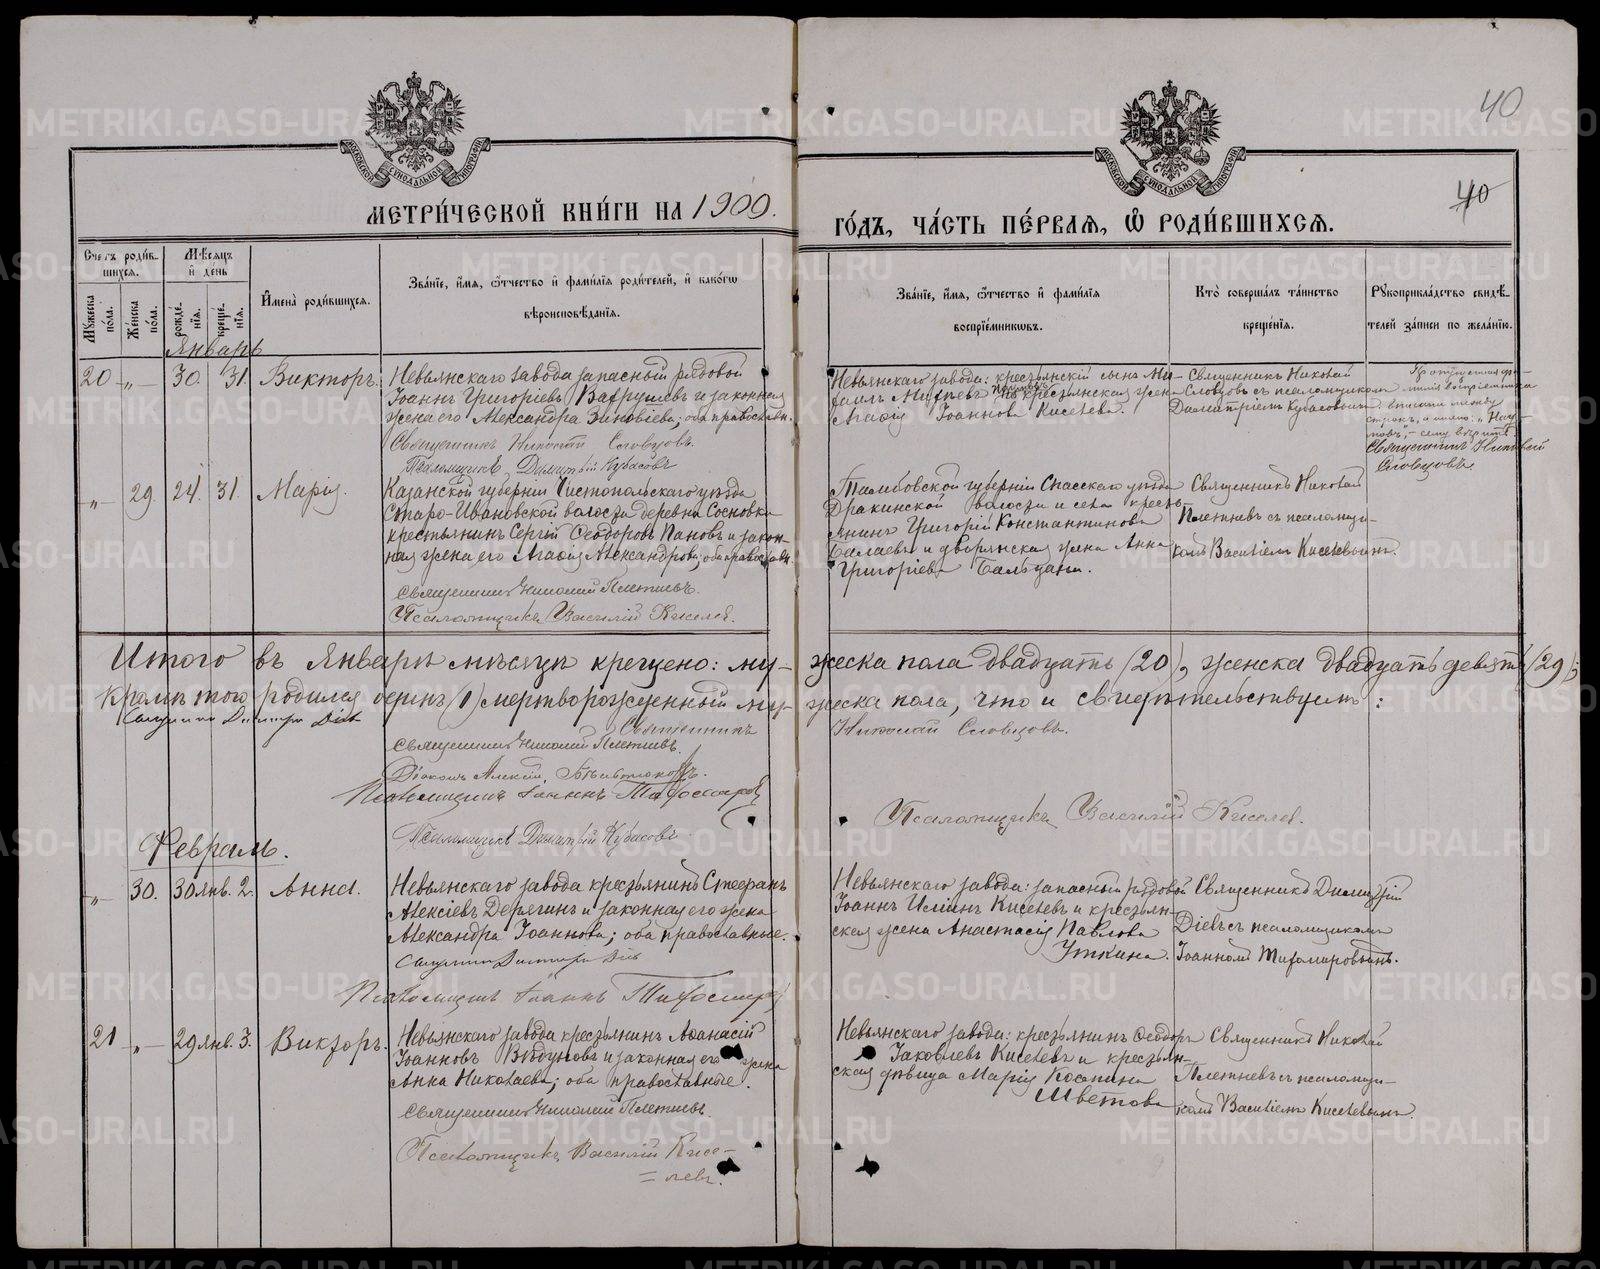 40
МОСКОВСКОЙ СУНОДАЛЬНОЙ ТИПОГРАФІИ
МОСКОВСКОЙ СУНОДАЛЬНОЙ ТИПОГРАФІИ
МЕТРИ́ЧЕСКОЙ КНИ́ГИ НА 1900.
ГО́ДЪ, ЧА́СТЬ ПЕ́РВАЯ, Ѡ РОДИ́ВШИХСЯ.
40
Счетъ роди́вшихся.
Мѣ́сяцъ и де́нь
Имена̀ роди́вшихся.
Зва́ніе, и́мя, ѻ҆́тчество и фами́лія роди́телей, и како́гѡ вѣроисповѣ́данія.
Мꙋжеска по́ла.
Же́нска по́ла.
рожде́нія.
креще́нія.
Зва́ніе, и́мя, ѻ҆́тчество и фами́лія воспріе́мникѡвъ.
Кто̀ соверша́лъ та́инство креще́нія.
Рꙋкоприкла́дство свидѣ́телей за́писи по жела́нію.
Январь
20 „ 30. 31. Викторъ.
Невьянскаго завода запасный рядовой
Іоаннъ Григоріевъ Вахрушевъ и законная
жена его Александра Зиновіева; оба православн.
Священникъ Николай Словцовъ.
Псаломщикъ Димитрій Кубасовъ
Невьянскаго завода: крестьянскій сынъ Ми-
хаилъ и крестьянская жена
Агафія Іоаннова Киселева.
Священникъ Николай
Словцовъ съ псаломщикомъ
Димитріемъ Кубасовымъ.
Пропущенная фа-
милія воспріемника
вписана между
строкъ, а именно: „Нау-
мовъ“,
Священникъ Николай
Словцовъ
„ 29. 24. 31. Марія.
Казанской губерніи Чистопольскаго уѣзда
Старо-Ивановской волости деревни Сосновки
крестьянинъ Сергій Ѳеодоровъ Пановъ и закон-
ная жена его Агафія Александрова; оба православн.
Священникъ Николай Плетневъ.
Псаломщикъ Василій Киселев.
Тамбовской губерніи Спасскаго уѣзда
Дракинской волости и села кресть-
янинъ Григорій Константиновъ
Балаевъ и дворянская жена Анна
Григоріева
Священникъ Николай
Плетневъ съ псаломщи-
комъ Василіемъ Киселевымъ.
Итого въ Январѣ мѣсяцѣ крещено: му-
жеска пола двадцать (20), женска двадцать девять (29);
кромѣ того родился одинъ (1) мертворожденный му-
жеска пола, что и свидѣтельствуемъ:
Священник Димитрій Діевъ
Священникъ
Николай Словцовъ.
Священникъ Николай Плетневъ.
Діаконъ Алексій
Псаломщикъ Іоаннъ Тихомировъ
Псаломщикъ Василій Киселев.
Псаломщикъ Димитрій Кубасовъ
Февраль.
„ 30. 30 янв. 2. Анна.
Невьянскаго завода крестьянинъ Стефанъ
Алексіевъ Дерягинъ и законная его жена
Александра Іоаннова; оба православные.
Священник Димитрій Діевъ
Псаломщикъ Іоаннъ Тихомировъ
Невьянскаго завода: запасный рядовой
Іоаннъ Иліинъ Киселевъ и крестьян-
ская жена Анастасія Павлова
Уткина.
Священникъ Димитрій
Діевъ съ псаломщикомъ
Іоанномъ Тихомировымъ.
21 „ 29 янв. 3. Викторъ.
Невьянскаго завода крестьянинъ Аѳанасій
Іоанновъ и законная его жена
Анна Николаева; оба православные.
Священникъ Николай Плетневъ.
Псаломщикъ Василій Кисе-
левъ.
Невьянскаго завода: крестьянинъ Ѳеодоръ
Іаковлевъ Киселевъ и крестьян-
ская дѣвица Марія Космина
Священникъ Николай
Плетневъ съ псаломщи-
комъ Василіемъ Киселевымъ.
METRIKI.GASO-URAL.RU